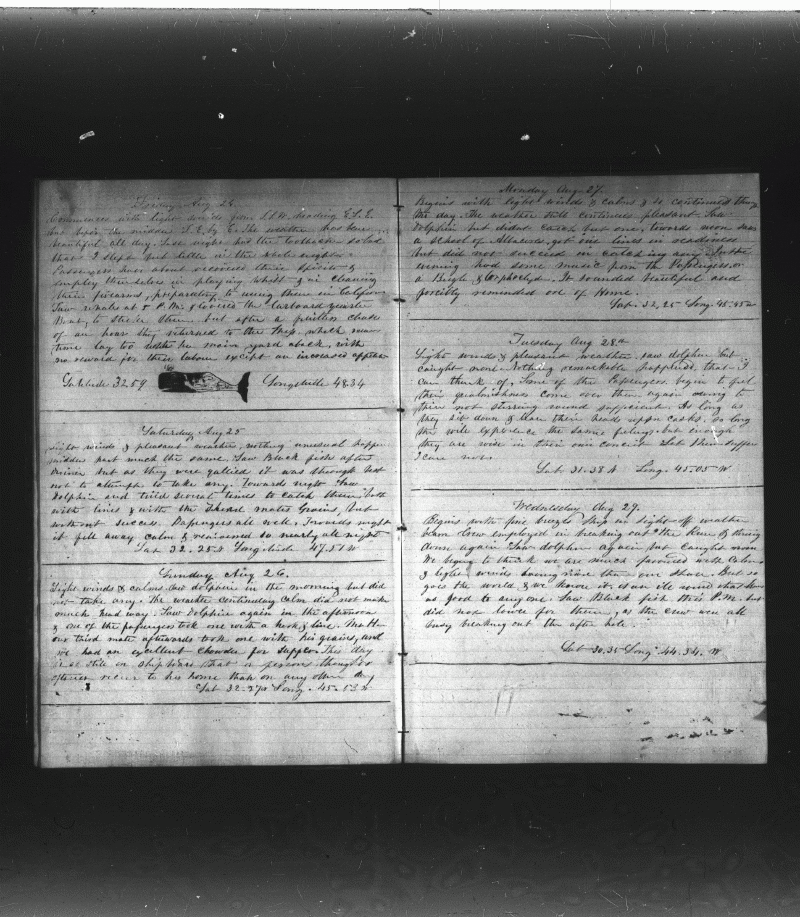 Friday Aug 24
Commences with light winds from S.S.W. heading S.S.E.
The weather has been
beautiful all day. Last night had the toothache so bad
that I slept but little in the whole night.
Passengers have about recovered their spirits &
employ themselves in playing whist & in cleaning
their firearms, preparatory to using them in California
Saw whales at 5 P.M. & lowered the Larboard quarter
Boat, to strike them, but after a fruitless chase
of an hour they returned to the Ship, which mean
time lay too with the main yard aback, with
no reward for their labour except an increased appetite
Latitude 32.59 Longitude 48.34
Saturday Aug 25
Light winds & pleasant weather, nothing unusual happen
middle part much the same. Saw Black fish after
dinner but as they were gallied it was thought best
not to attempt to take any. Towards night Saw
Dolphin and tried several times to catch them both
with lines & with the Third mates Grains, but
without success. Passengers all well. Towards night
it fell away calm & remained so nearly all night
Lat 32.25 Longitude 47.51 W
Sunday Aug 26.
Light winds & calms saw dolphins in the morning but did
not take any. The weather continuing calm did not make
much head way. Saw Dolphin again in the afternoon
& one of the passengers took one with a hook & line. Mr H
our third mate afterwards took one with his grains, and
we had an excellent Chowder for Supper. This day
is so still on Ship board that a persons thoughts
oftener recur to his home than on any other day
Lat 32.27 Long. 45.53 W
Monday Aug 27.
Begins with light winds & calms & so continued through
the day. The weather still continues pleasant. Saw
Dolphin but didnt catch but one, towards noon saw
a school of Albacores, got our lines in readiness
but did not succeed in catching any. In the
evening had some music from the Passengers, on
a Bugle & It sounded beautiful and
forcibly reminded one of Home.
Lat. 32.25 Long. 45.45 W
Tuesday Aug 28th
Light winds & pleasant weather, saw dolphin but
caught none. Nothing remarkable happened that I
can think of. Some of the Passengers begin to feel
their qualmishness come over them again owing to
their not stirring round sufficient. As long as
they sit down & lean their heads upon casks, so long
they will experience the same feelings, but enough
they are wise in their own conceit. Let them suffer
I care not.
Lat 31.38 N Long. 45.05 W
Wednesday Aug 29.
Begins with fine breeze Ship in sight off weather
beam Crew employed in breaking out the Run & stowing
down again Saw dolphin again but caught none
We begin to think we are much favored with Calms
& light winds having more than our share. But so
goes the world, & we know it is an ill wind that blows
no good to any one. Saw Black fish this P.M. but
did not lower for them, as the crew were all
busy breaking out the after hole.
Lat 30.35 Long 44.34. W